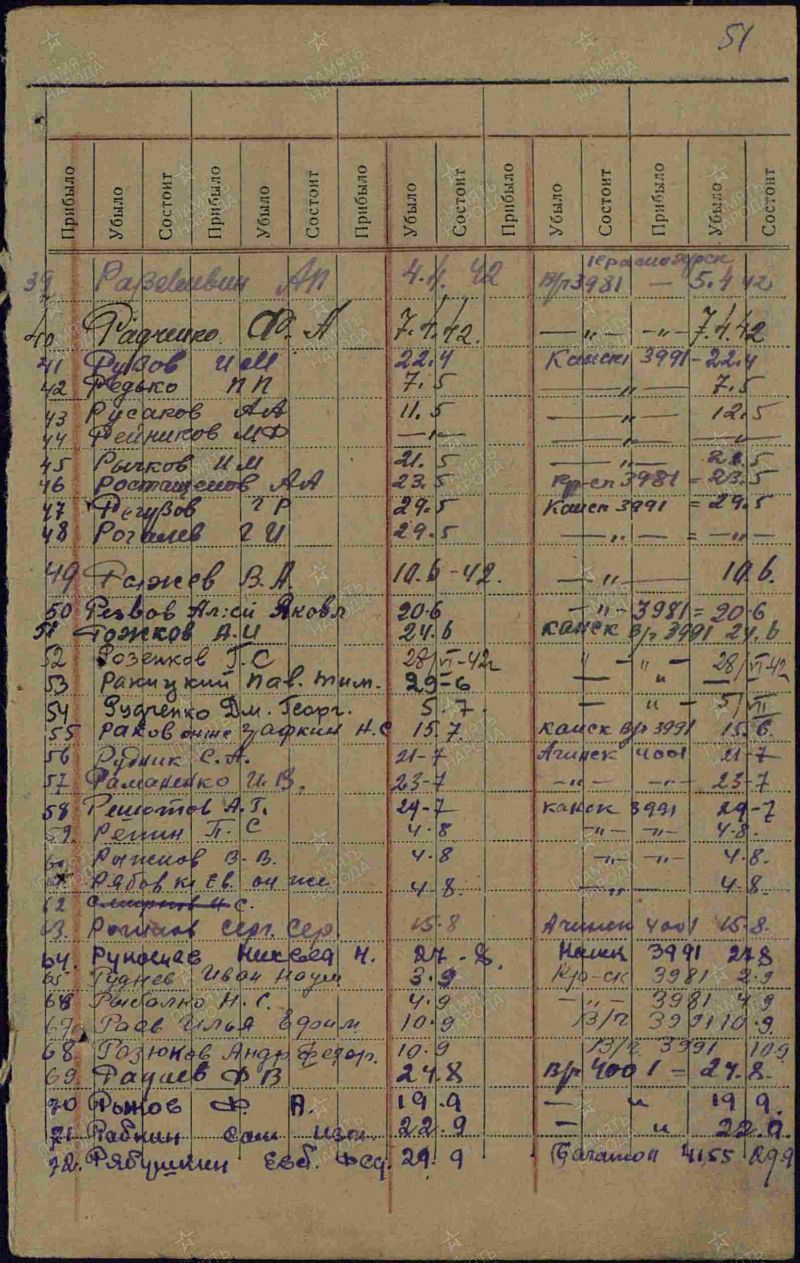 51
Прибыло Убыло Состоит Прибыло Убыло Состоит Прибыло Убыло Состоит Прибыло Убыло Состоит Прибыло Убыло Состоит
Красноярск
39 АП 4.4.42 В/р 3981 — 5.4.42
40 Радченко Ф. А 7.4.42. —〃— —〃— 7.4.42
41 И М 22.4 Канск 3991 - 22.4
42 Редько П П 7.5 —〃— 7.5
43 Русаков А А 11.5 —〃— 12.5
44 Рейников М Ф —〃— —〃— —〃—
45 Рычков И М 21.5 —〃—
46 А А 23.5 Кр-ск 3981 = 23.5
47 Г Р 29.5 Канск 3991 = 29.5
48 Рогалев Г И 29.5 —〃— = —〃—
49 В. А. 10.6-42. —〃— 10.6.
50 Резвов Ал:ей Яковл 20.6 —〃— 3981 = 20.6
51 Рожков А. И 24.6 Канск В/р 3991 24.6
52 Розенков Г. С 28/VI-42г 〃 —〃— 28/VI-42
53 Ракицкий Пав. Тим. 29=6 — 〃 —
54 Рудченко Дм. Георг. 5.7. — 〃 — 5/VII
55 Раков он же Н. С 15.7 Канск Вр 3991
56 Рудник С. А. 21-7 Ачинск 4001 21-7
57 Раманенко И. В. 23-7 —〃— —〃— 23-7
58 Решотов А. Г. 29-7 Канск 3991 29-7
59. Репин П. С 4.8 —〃— —〃— 4.8.
60 В. В. 4.8 —〃— —〃— 4.8.
Рябов Ев. он же 4.8. —〃— 4.8.
62 С.
63 Серг. Сер. 15.8 Ачинск 4001 15.8.
64. Н. 27-8. 3991 27.8
65 Руднев Иван Наум 3.9 Кр-ск 3981
66 Рыбалко Н. С. 4.9 —〃— 3981 4.9
67 Раев Илья Ефим 10.9 В/г 3991 10.9
68 Разюков Андр Федор. 10.9 В/г 3991 10.9
69. Ф В 24.8 В/р 4001 = 24.8.
70 Рыжов Ф А. 19.9 — 〃 19.9.
71 Рабкин 22.9 — 〃 22.9.
72. Рябушкин Фед. 29.9 4155 29.9